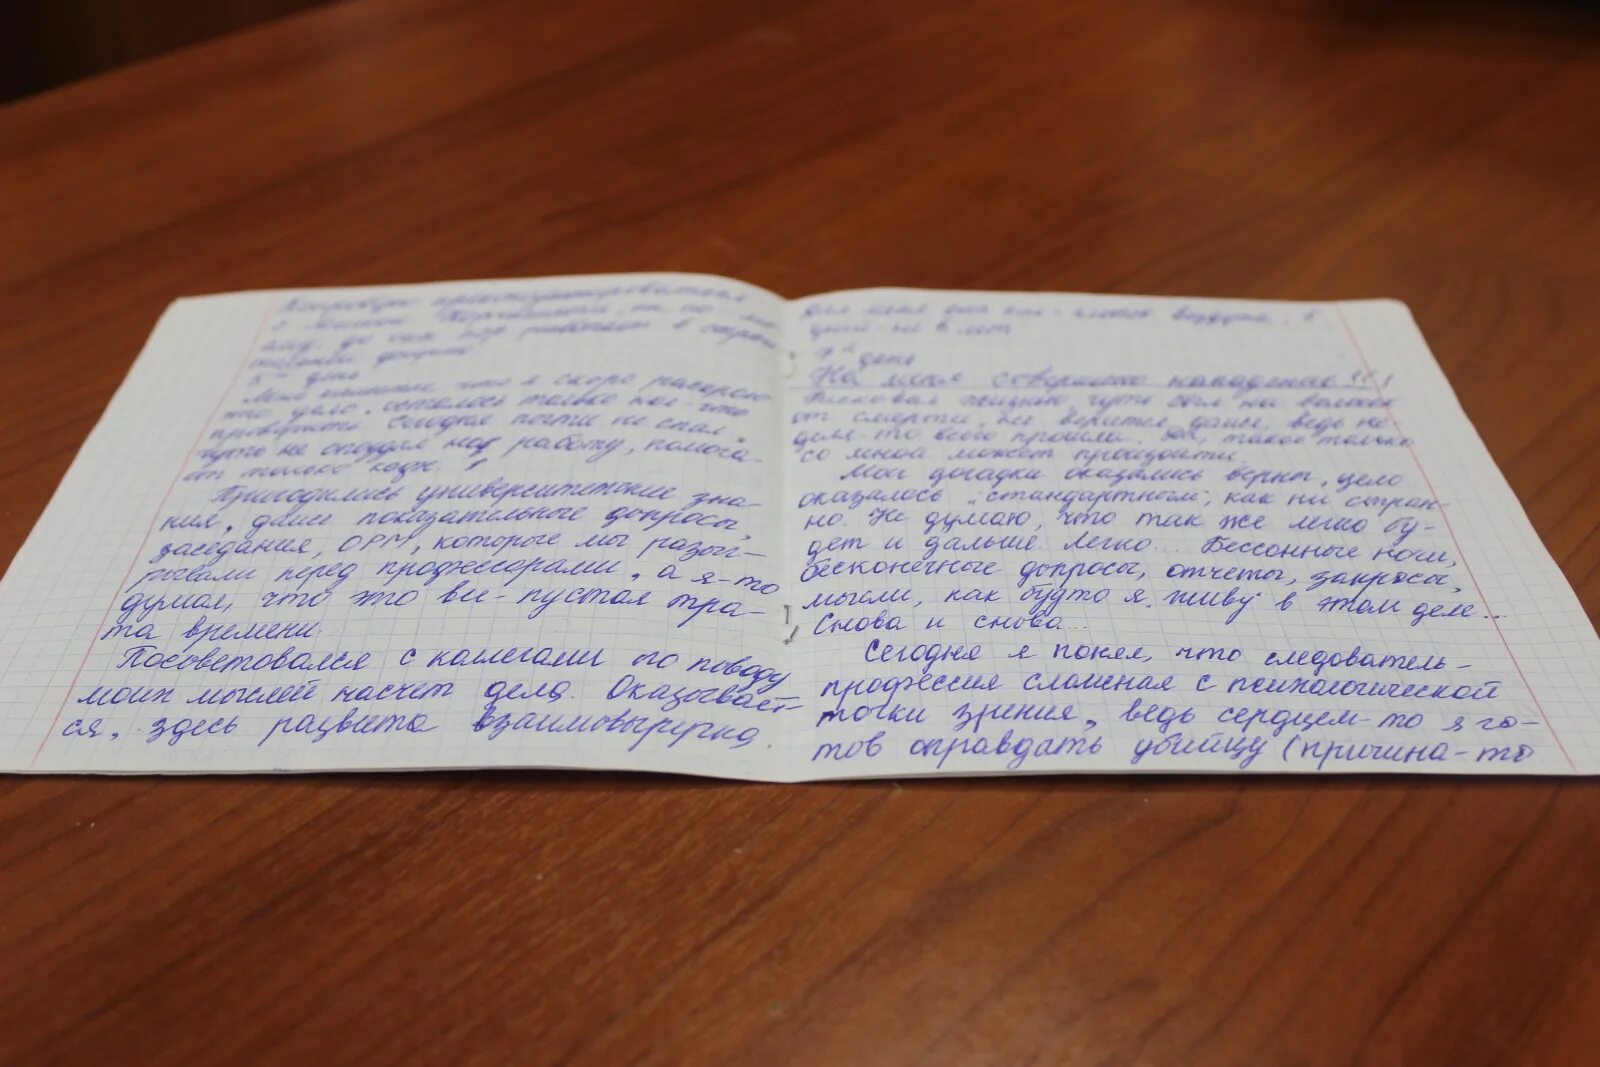 5 день
Мне кажется, что я скоро раскрою
это дело, осталось только кое-что
проверить. Сегодня почти не спал,
чуть не опоздал на работу, помога-
ет только кофе.
Пригодились университетские зна-
ния, даже показательные допросы,
заседания, ОРМ, которые мы разыг-
рывали перед профессорами, а я-то
думал, что это все - пустая тра-
та времени.
Посоветовался с коллегами по поводу
моих мыслей насчет дела. Оказывает-
ся, здесь развита взаимовыручка.
день
На меня совершено нападение!!!
жизнью чуть был на волоске
от смерти, не верится даже, ведь не-
деля-то всего прошла. Да, такое только
со мной может произойти.
Мои догадки оказались верны, дело
оказалось "стандартным", как ни стран-
но. Не думаю, что так же легко бу-
дет и дальше. Легко... Бессонные ночи,
бесконечные допросы, отчеты, запросы,
мысли, как будто я живу в этом деле...
Снова и снова...
Сегодня я понял, что следователь -
профессия сложная с психологической
точки зрения, ведь сердцем-то я го-
тов оправдать убийцу (причина-то